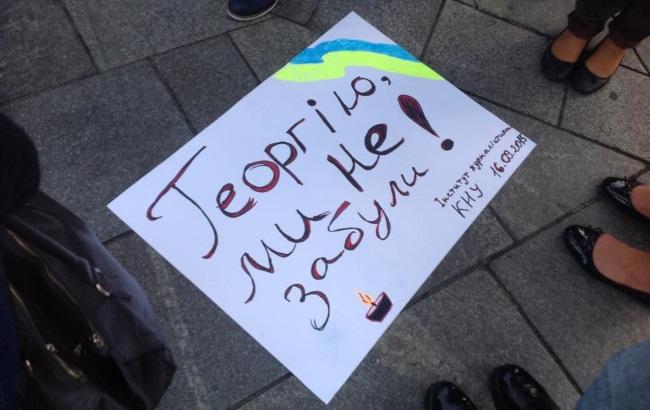 Георгію,
ми не
забули!
Інститут журналістики
КНУ 16.09.2015